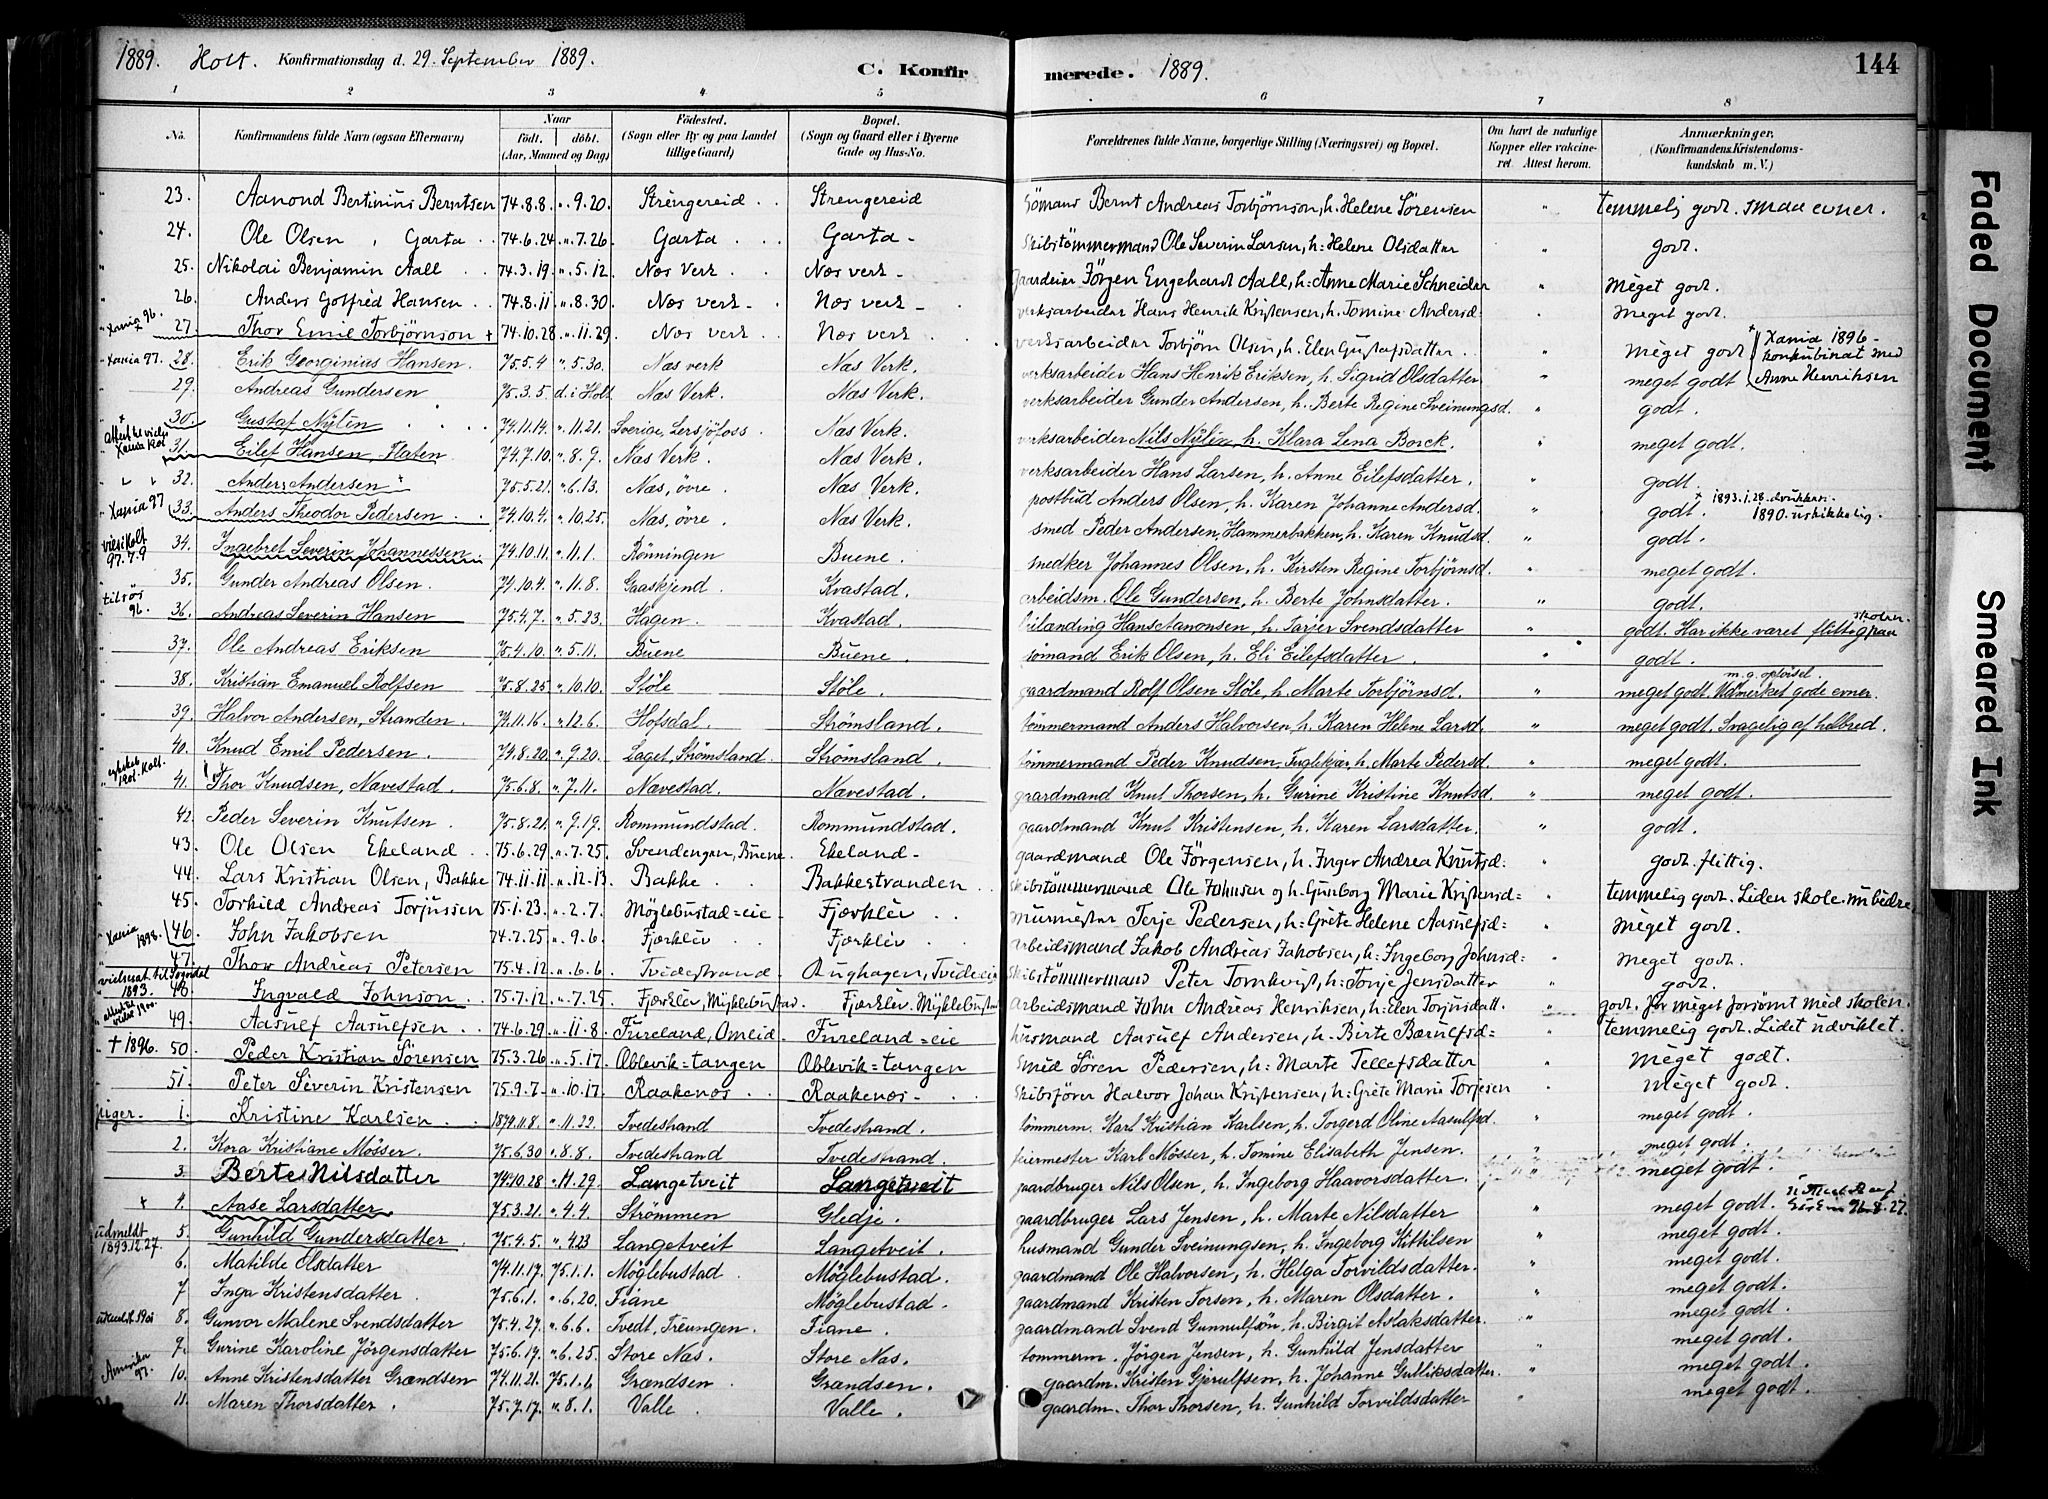 1889. Holt. Konfirmationsdag d. 29. September 1889. C. Konfir
merede. 1889. 144
1 2 3 4 5 6 7 8
No. Konfirmandens fulde Navn (ogsaa Efternavn) Naar født. døbt. (Aar, Maaned og Dag) Fødested. (Sogn eller By og paa Landet tillige Gaard) Bopæl. (Sogn og Gaard eller i Byerne Gade og Hus-No. Forældrenes fulde Navne, borgerlige Stilling (Næringsvei) og Bopæl. Om havt de naturlige Kopper eller vakcineret. Attest herom. Anmærkninger. (Konfirmandens Kristendomskundskab m. V.)
23. Aanond Bertinius Berntsen 74.8.8. ". 9.20. Strengereid Strengereid Sømand Bernt Andreas Torbjørnson, h. Helene Sørensen " temmelig godt. smaa evner.
24. Ole Olsen, Garta 74.6.24. ". 7.26. Garta Garta Skibstömmermand Ole Severin Larsen, h: Helene Olsdatter " godt.
25. Nikolai Benjamin Aall 74.3.19. ". 5.12. Næs Verk Næs verk Gaardeier Jörgen Engehardt Aall, h: Anne Marie Schneider " Meget godt.
26. Anders Gotfred Hansen 74.8.11. ". 8.30. Næs verk Næs verk verksarbeider Hans Henrik Kristensen, h. Tomine Andersd. " Meget godt.
Xania 96. 27. Thor Emil Torbjørnson + 74.10.28. ". 11.29. Næs verk Næs verk verksarbeider Torbjørn Olsen, h. Elen Gustafsdatter " Meget godt + Xania 1896 - konkubinat med Anne Henriksen
Xania 97. 28. Erik Georginius Hansen. 75.5.4 ". 5.30. Næs verk Næs Verk. verksarbeider Hans Henrik Eriksen, h. Sigrid Olsdatter " meget godt
29. Andreas Gundersen 75.3.5. d. i Holt Næs Verk. Næs Verk. verksarbeider Gunder Andersen, h. Berte Regine Sveinungsd. " godt.
+ 30. Gustaf Nylin 74.11.14. ". 11.21. Sverige, Lersjöfoss Næs Verk. verksarbeider Nils Nylin, h. Klara Lena Borck. " meget godt.
31. Eilef Hansen, Flaten 74.7.10. ". 8.9. Næs Verk. Næs Verk. verksarbeider Hans Larsen, h. Anne Eilefsdatter. " godt.
32. Anders Andersen 75.5.21. ". 6.13. Næs, övre. Næs Verk. postbud Anders Olsen, h. Karen Johanne Andersd. " godt. + 1893.1.28. drukken. 1890. uskikkelig.
Xania 97 33. Anders Theodor Pedersen 74.10.4. ". 10.25. Næs, övre. Næs Verk. smed Peder Andersen, Hammerbakken, h. Karen Knudsd. " godt.
97.7.9 34. Ingebret Severin Johannessen 74.10.11. ". 11.1. Rönningen Buene. smedker Johannes Olsen, h. Kirsten Regine Torbjörnsd. " meget godt.
35. Gunder Andreas Olsen. 74.10.4. ". 11.8. Gaaskjend Kvastad. arbeidsm. Ole Gundersen, h. Berte Johnsdatter. " godt.
96. 36. Andreas Severin Hansen 75.4.7. ". 5.23. Hagen. Kvastad. Hans Aanonsen, h. Tarjer Svendsdatter " godt. Har ikke været flittig paa skolen.
37. Ole Andreas Eriksen 75.4.10. ". 5.11. Buene Buene. sömand Erik Olsen, h. Eli Eilefsdatter. " godt.
38. Kristian Emanuel Rolfsen 75.8.25. ". 10.10. Støle Støle. gaardmand Rolf Olsen Støle, h. Marte Torbjörnsd. " meget godt. Udmerket gode evner.
39. Halvor Andersen, Stranden. 74.11.16. ". 12.6. Hofsdal. Strømsland. tömmermand Anders Halvorsen, h. Karen Helene Larsd. " meget godt. Svagelig af helbred.
40. Knud Emil Pedersen. 74.8.20. ". 9.20. Laget, Strømsland. Strømsland. tömmermand Peder Knudsen, Fuglekjær, h. Marte Pedersd. " meget godt.
41. Thor Knudsen, Nævestad. 75.6.8. ". 7.11. Nævestad. Nævestad. gaardmand Knut Thorsen, h. Gurine Kristine Knutsd. " meget godt.
42. Peder Severin Knutsen 75.8.21. ". 9.19. Rommundstad. Rommundstad. gaardmand Knut Kristensen, h. Karen Larsdatter. " godt.
43. Ole Olsen Ekeland 75.6.29. ". 7.25. Svendengen, Buene. Ekeland gaardmand Ole Jörgensen, h. Inger Andrea Knutsd: " godt. flittig.
44. Lars Kristian Olsen, Bakke 74.11.11. ". 12.13. Bakke Bakkestranden Skibstömmermand Ole Johnsen og h: Gunborg Marie Kristensd: " temmelig godt. Liden skole. nu bedre
45. Torkild Andreas Torjussen 75.1.23. ". 2.7. Möglebustad=eie Fjærklev murmester Terje Pedersen, h: Grete Helene Aasulfsd: " Meget godt.
Xania 1898. 46. John Jakobsen 74.7.25. ". 9.6. Fjærklev Fjærklev arbeidsmand Jakob Andreas Jakobsen, h: Ingeborg Johnsd: " Meget godt.
47. Thor Andreas Petersen 75.4.12. ". 6.6. Tvedestrand Aughagen, Tvede eie Skibstömmermand Peter Tornkvist, h: Torje Jensdatter " godt.
1893. 48. Ingvald Johnson 75.7.12. ". 7.25. Fjærklev, Myklebustad Fjærklev. Myklebustad Arbeidsmand John Andreas Henriksen, h: Elen Torjusdatt. " godt. før meget forsømt med skolen.
49. Aasulf Aasulfsen 74.6.29. ". 11.8. Fureland, Omlid. Fureland=eie husmand Aasulf Andersen, h: Birte Bærulfsd= " temmelig godt. Lidet udviklet.
† 1896. 50. Peder Kristian Sörensen 75.3.26. ". 5.17. Oblevik=tangen Oblevik=tangen Smed Sören Pedersen, h: Marte Tellefsdatter " Meget godt.
51. Peter Severin Kristensen 75.9.7. ". 10.17. Raakenæs Raakenæs Skibsförer Halvor Johan Kristensen, h: Grete Marie Torjesen " Meget godt.
piger. 1. Kristine Karlsen 1874.11.8. ". 11.22. Tvedestrand Tvedestrand. tömmerm. Karl Kristian Karlsen, h. Torgerd Oline Aasulfsd. " meget godt.
2. Kora Kristiane Mösser. 75.6.30 ". 8.8. Tvedestrand Tvedestrand. feiermester Karl Mösser, h. Tomine Elisabeth Jensen. " meget godt.
3. Berte Nilsdatter 74.10.28 ". 11.29. Langetveit Langetveit gaardbruger Nils Olsen, h. Ingeborg Haavorsdatter. meget godt.
+ 4. Aase Larsdatter 75.3.21. ". 4.4. Strömmen Gledje. gaardbruger Lars Jensen, h. Marte Nilsdatter " meget godt.
udmeldt 1893.12.27. 5. Gunhild Gundersdatter 75.4.5. ". 4.23 Langetveit Langetveit. husmand Gunder Sveinungsen, h. Ingeborg Kittilsen " meget godt.
6. Matilde Olsdatter 74.11.17. 75.1.1. Möglebustad Möglebustad. gaardmand Ole Halvorsen, h. Helga Torvildsdatter. " meget godt.
7. Inga Kristensdatter 75.6.1. ". 6.20. Fiane Möglebustad. gaardmand Kristen Torsen, h. Maren Olsdatter. " meget godt.
8. Gunvor Malene Svendsdatter 75.4.27. ". 6.6. Tvedt, Treungen. Fiane. gaardmand Svend Gunnulfsön, h. Birgit Aslaksdatter. " meget godt.
9. Gurine Karoline Jörgensdatter 75.6.17. ". 6.25. Store Næs. Store Næs. tömmerm. Jörgen Jensen, h. Gunhild Jensdatter " meget godt.
Amerika 97. 10. Anne Kristensdatter Grændsen 74.11.21. 75.1.6. Grændsen Grændsen. gaardm. Kristen Gjerulfsen, h. Johanne Gulliksdatter. " meget godt.
11. Maren Thorsdatter. 75.7.17. ". 8.1. Valle. Valle. gaardm. Thor Thorsen, h. Gunhild Torvildsdatter " meget godt.
Faded Document
Smeared Ink